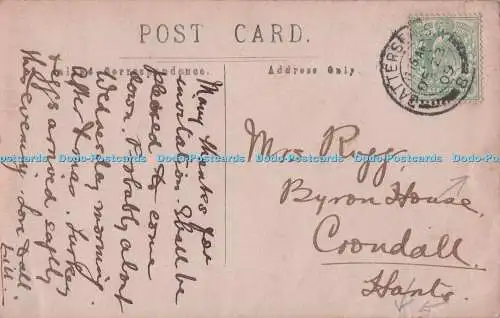 POST CARD.
Inland Correspondence.
Address Only.
BATTERSEA
Many thanks for
invitation. Shall be
pleased to come
down. Probably about
Wednesday morning
after Xmas. Turkey
& eggs arrived safely
this evening. Love to all.
Mrs Rigg,
Byron House,
Crondall,
Hants.
Dodo-Postcards Dodo-Postcards Dodo-Postcards Dodo-Postcards Dodo-Postcards Dodo-Postcards